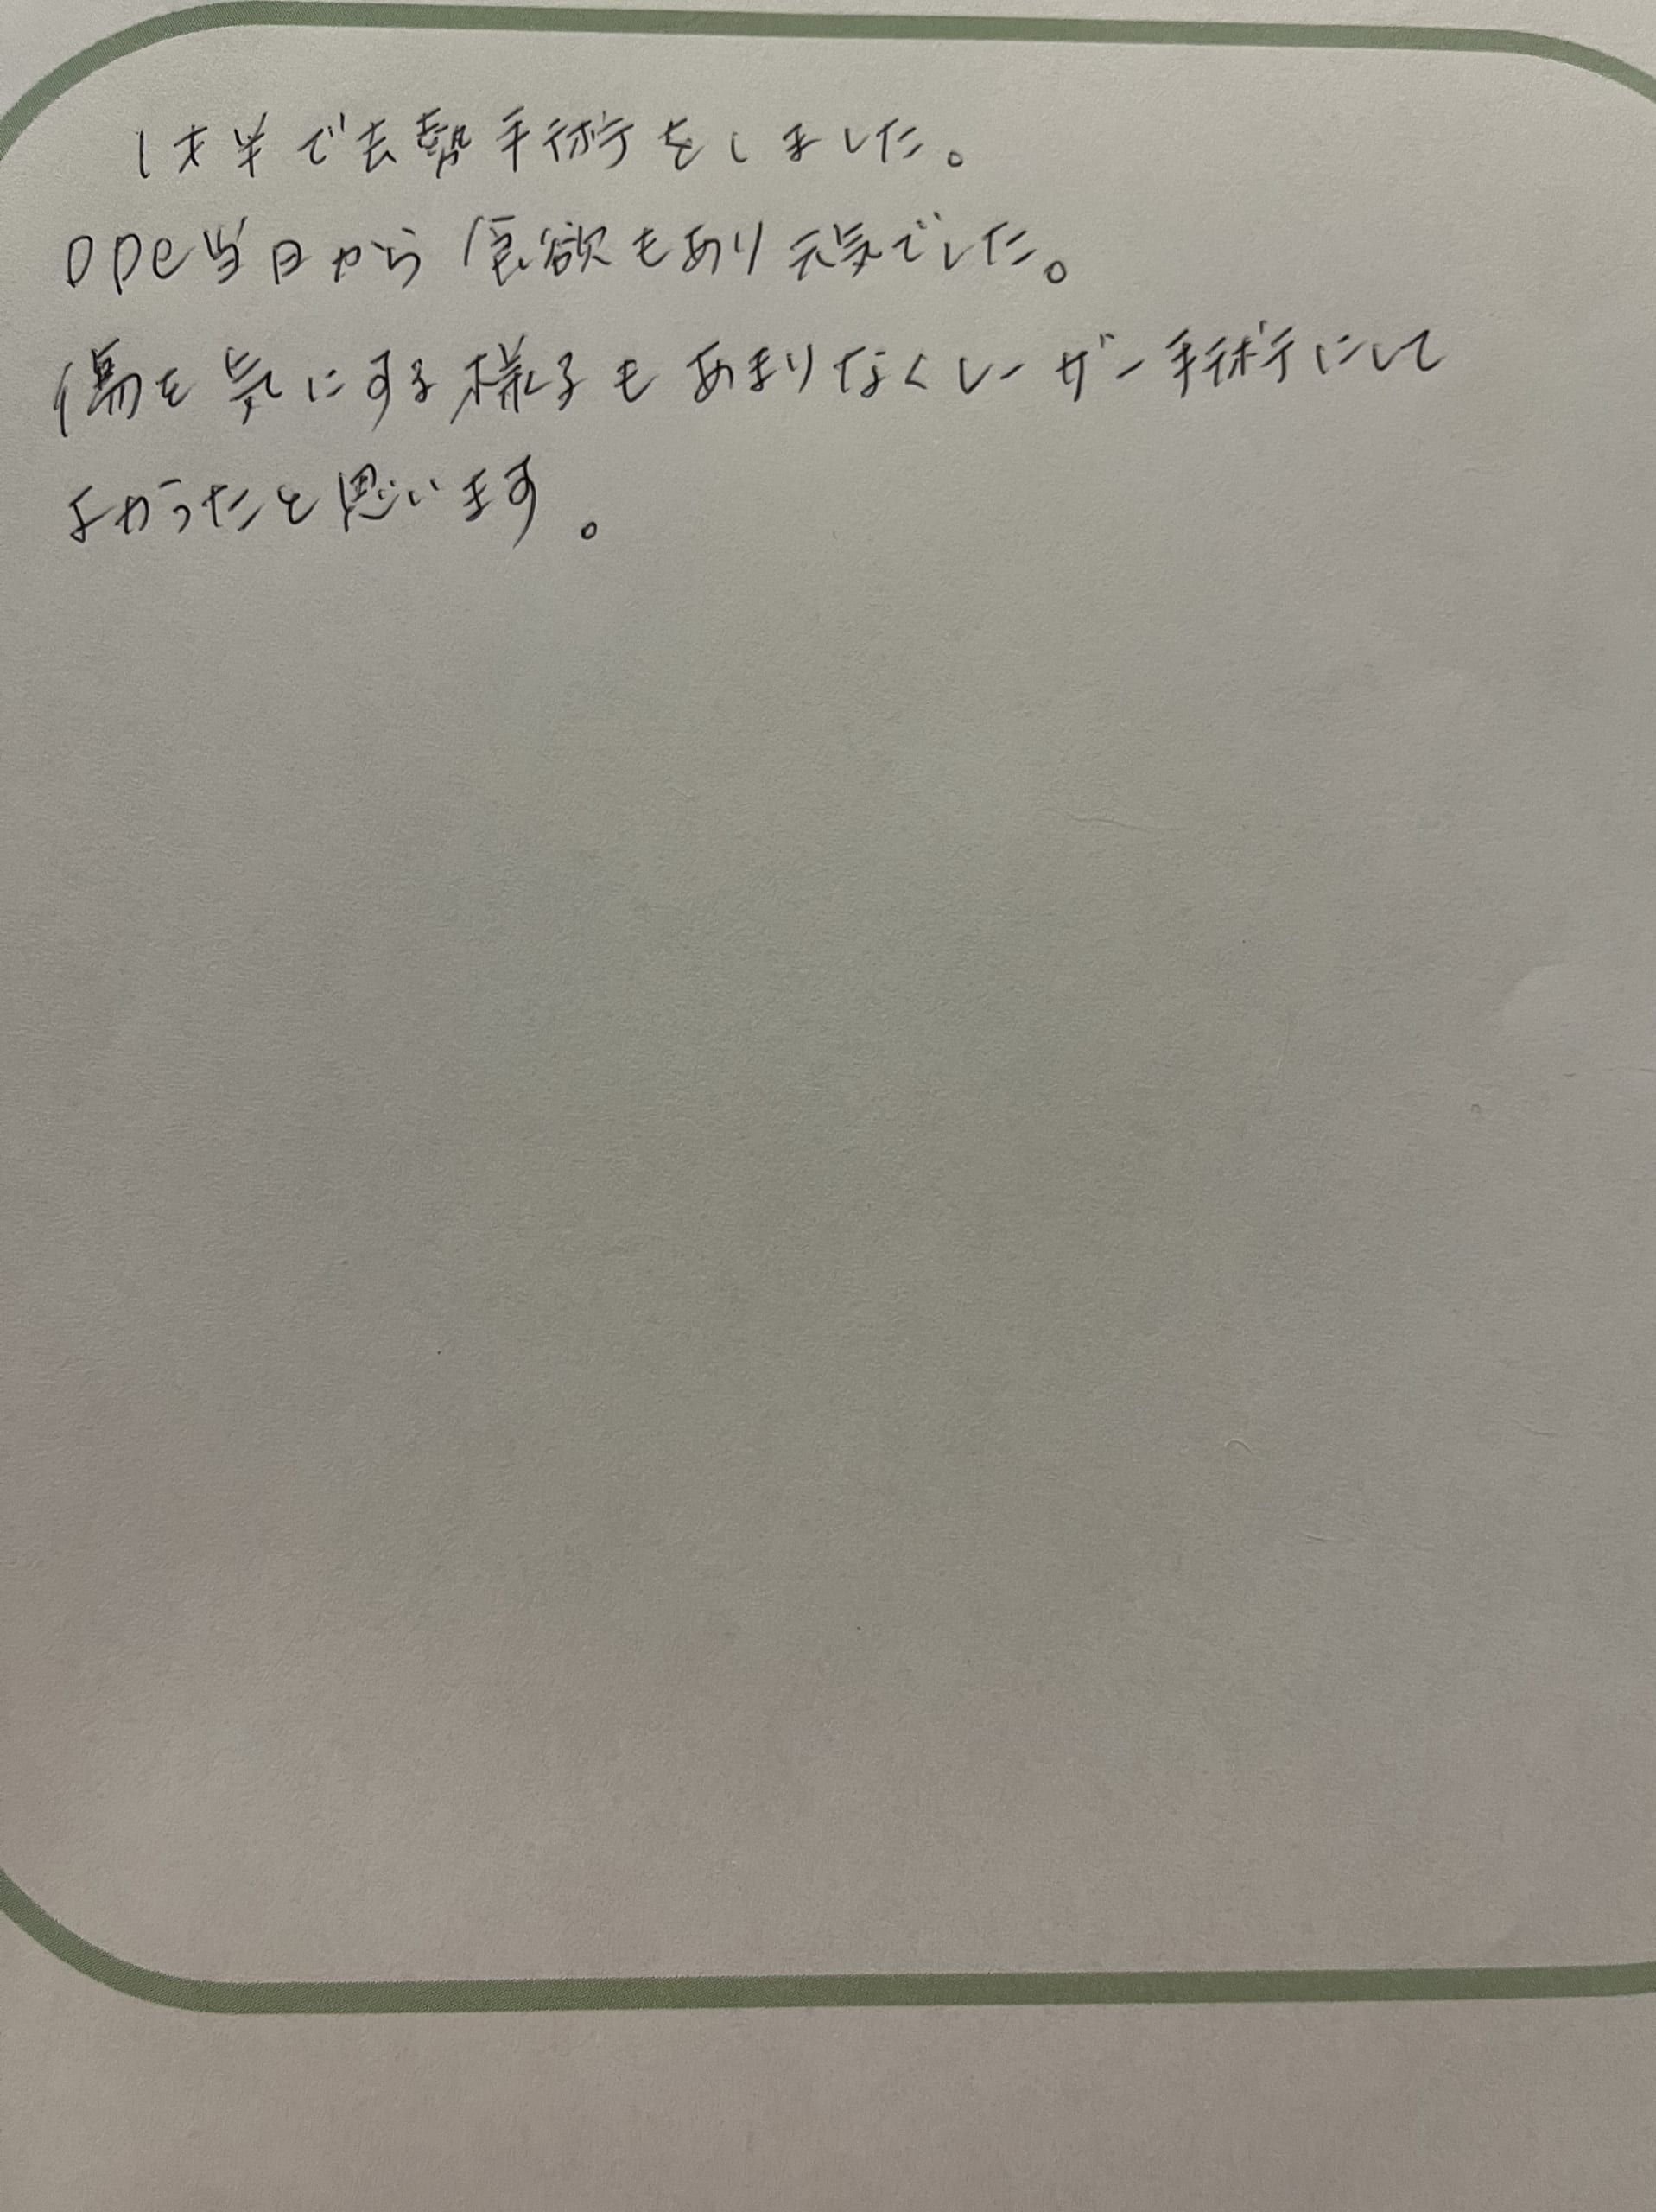 1才半で去勢手術をしました。
OPe当日から食欲もあり元気でした。
傷を気にする様子もあまりなくレーザー手術にして
よかったと思います。